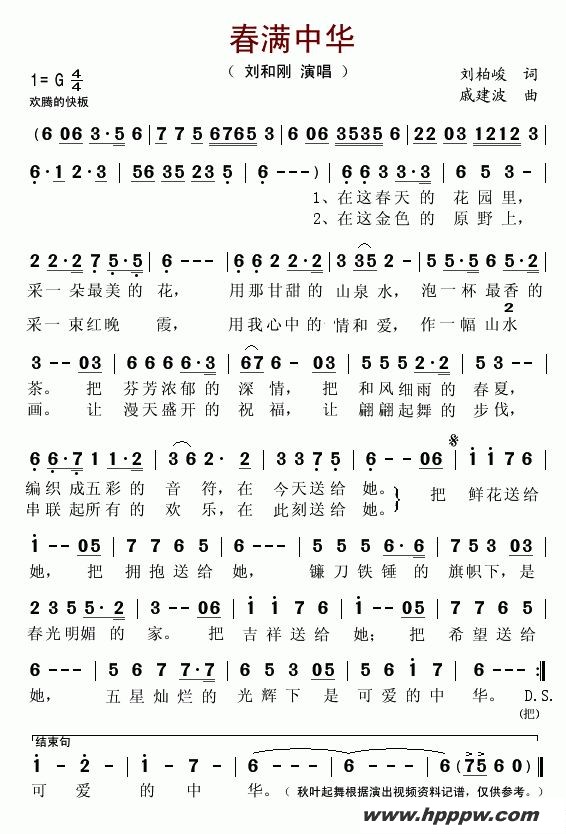 春满中华
( 刘和刚 演唱 )
1= G 4/4
刘柏峻 词
欢腾的快板
戚建波 曲
(6 06 3·5 6 | 7 7 5 6765 3 | 6 06 3535 6 | 22 03 1212 3 |
6·1 2·3 | 56 35 23 5 | 6 - - -) | 6 6 3 3·3 | 6 5 3 - |
1、在这春天 的 花 园 里,
2、在这金色 的 原 野 上,
2 2·2 7 5·5 | 6 - - - | 6 6 2 2·2 | 3 35 2 - | 5 5·5 6 5·2 |
采一 朵最美 的 花, 用 那甘甜 的 山泉 水, 泡 一杯 最香 的
2
采一 束红晚 霞, 用 我心中 的 情和 爱, 作 一幅 山水
3 - - 03 | 6 6 6 6·3 | 67 6 - 03 | 5 5 5 5·2 | 2 5 3 - |
茶。 把 芬芳浓郁 的 深 情, 把 和风细雨 的 春夏,
画。 让 漫天盛开 的 祝 福, 让 翩翩起舞 的 步伐,
6 6·7 1 1·2 | 3 6 2· 2 | 3 3 7 5 | 6 - - 06 | i i 7 6 |
编织 成五彩 的 音 符, 在 今天送给 她。 把 鲜花送给
串联 起所有 的 欢 乐, 在 此刻送给 她。
i - - 05 | 7 7 6 5 | 6 - - - | 5 5 5 6·6 | 7 5 3 03 |
她, 把 拥抱送给 她, 镰刀铁锤 的 旗帜下, 是
2 3 5 5·2 | 3 - - 06 | i i 7 6 | i - - 05 | 7 7 6 5 |
春光明媚 的 家。 把 吉祥送给 她; 把 希望送给
6 - - - | 5 6 7 7·7 | 6 5 3 05 | 2 1 5 7 | 6 - - - :||
她, 五星灿烂 的 光辉下 是 可爱的中 华。 D.S.
(把)
结束句
i - 2 - | i - 7 - | 6 - - - | 6 - - - | 6 (75 6 0) ||
可 爱 的 中 华。 ( 秋叶起舞根据演出视频资料记谱,仅供参考。)
www.hpppw.com